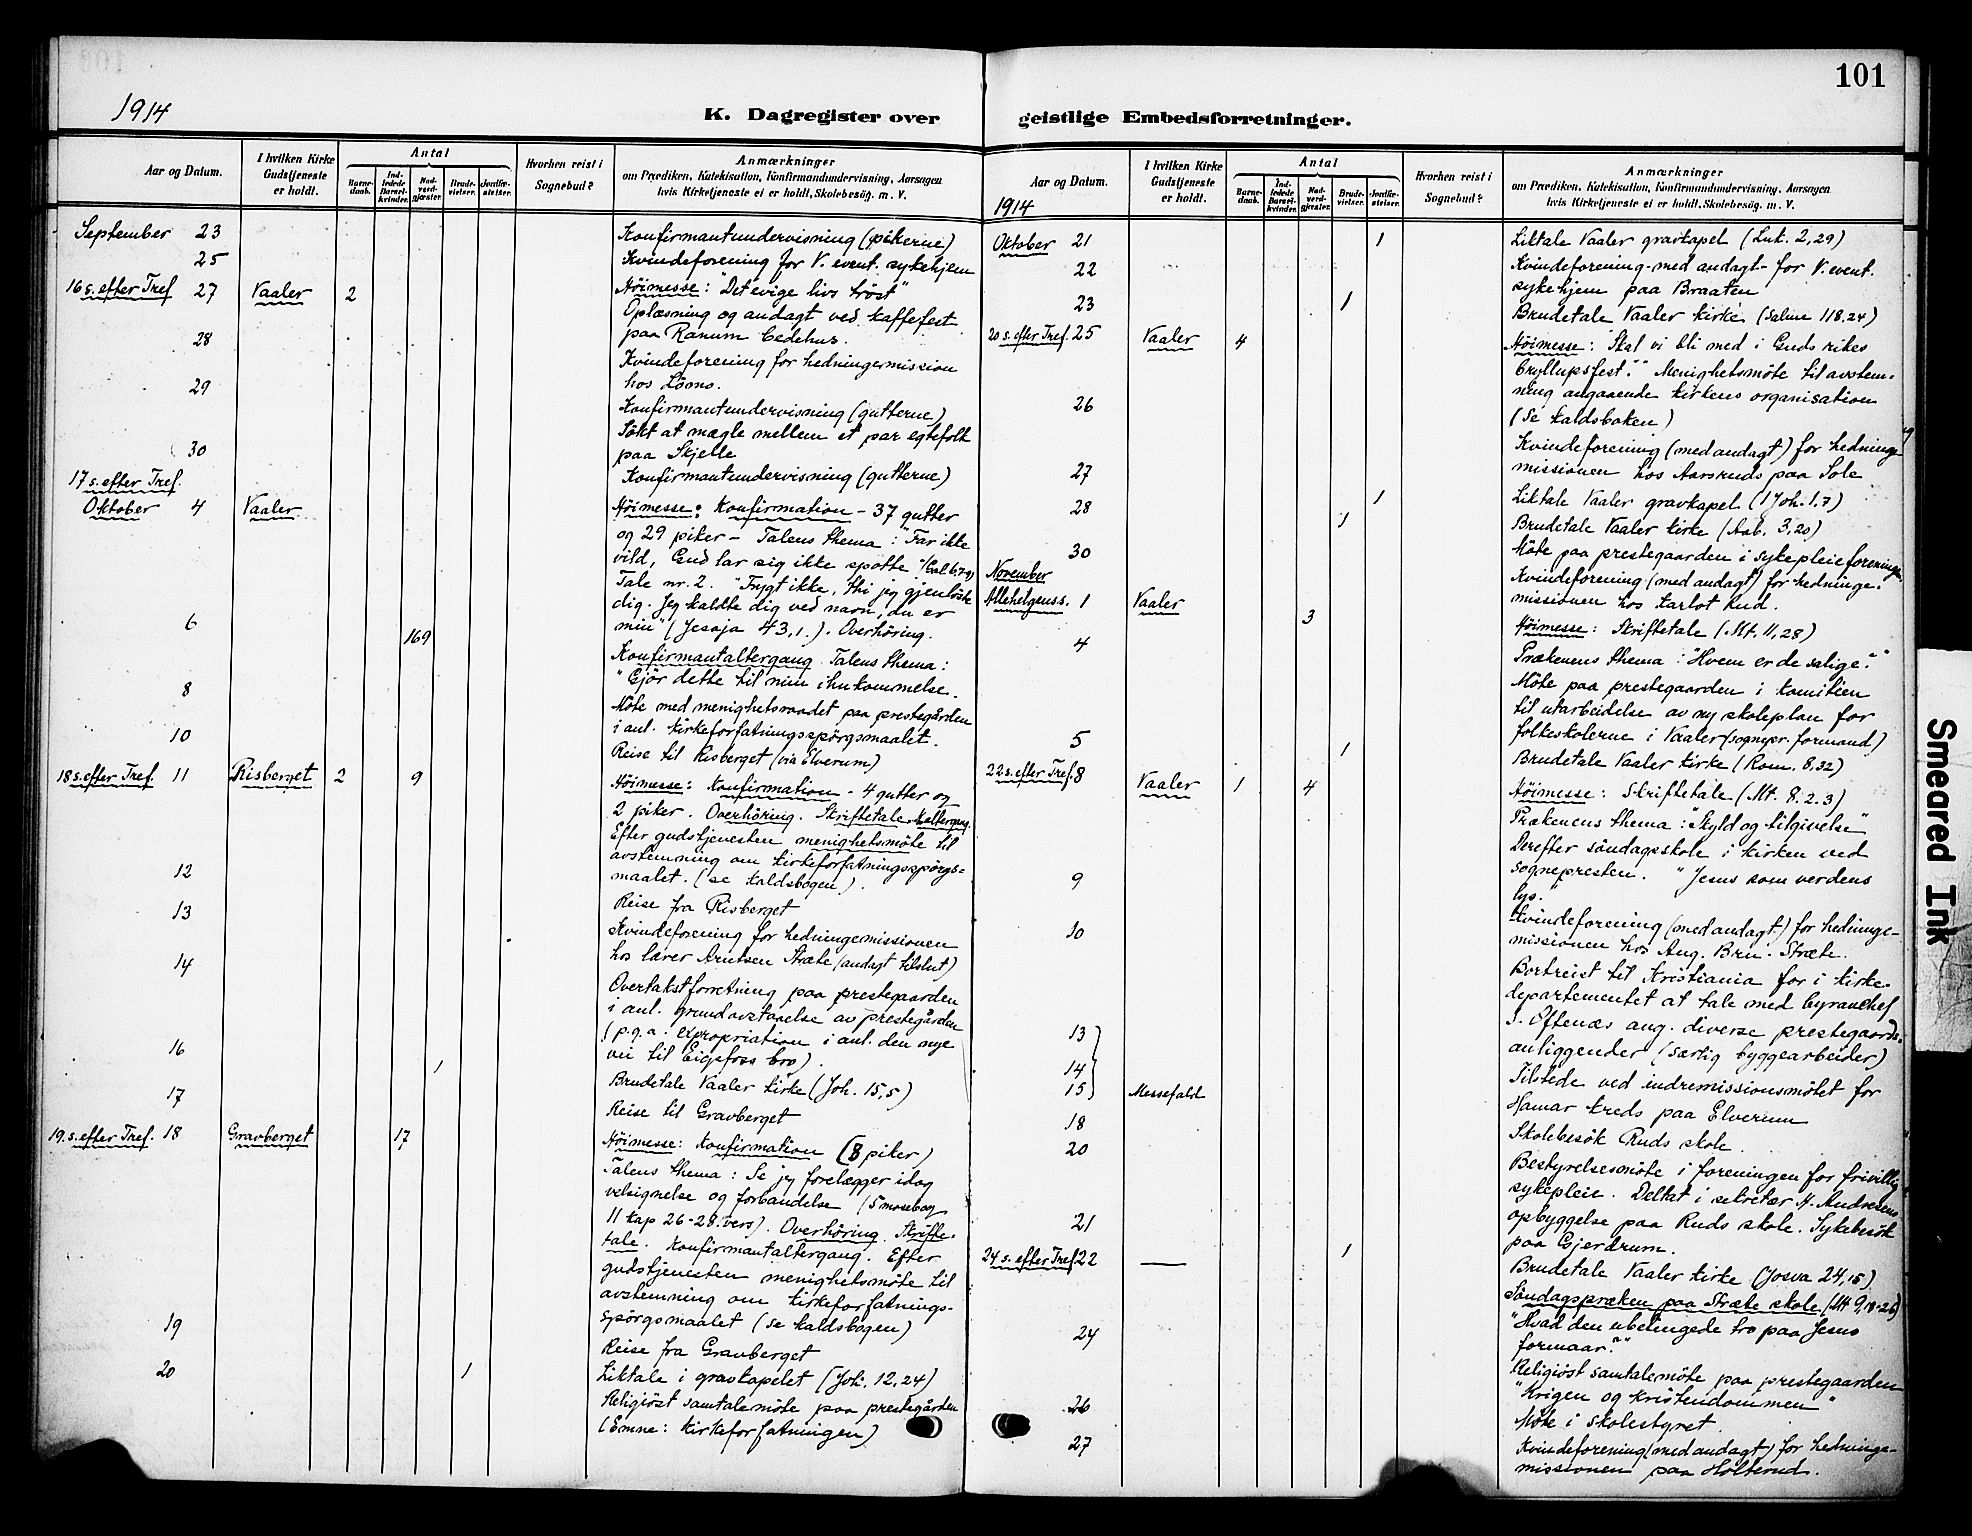 101
1914
K. Dagregister over
Aar og Datum.
I hvilken Kirke
Gudstjeneste
er holdt.
Antal
Barne-
daab.
Ind-
ledede
Barsel-
kvinder.
Nad-
verd-
gjæster.
Brude-
vielser.
Jordfæ-
stelser.
Hvorhen reist i
Sognebud?
Anmærkninger
om Prædiken, Katekisation, Konfirmandundervisning, Aarsagen
hvis Kirketjeneste ei er holdt, Skolebesøg. m. V.
September 23 Konfirmantundervisning (pikerne)
25 Kvindeforening for V. event. sykehjem
16 s. efter Tref. 27 Vaaler 2 Höimesse: "Det evige livs tröst"
Oplæsning og andagt ved kaffefest
paa Ranum bedehus.
28 Kvindeforening for hedningermission
hos Lömo.
29 Konfirmantundervisning (gutterne)
Sökt at mægle mellem et par egtefolk
paa Skjelle
30 Konfirmantundervisning (gutterne)
17 s. efter Tref.
Oktober 4 Vaaler Höimesse: Konfirmation - 37 gutter
og 29 piker - Talens thema: "Far ikke
vild, Gud lar sig ikke spotte" (Gal 6,7-9)
Tale nr. 2. "Frygt ikke, thi jeg gjenlöste
dig. Jeg kaldte dig ved navn, du er
min" (Jesaja 43,1.). Overhöring.
6 169 Konfirmantaltergang. Talens thema:
"Gjör dette til min ihukommelse.
8 Möte med menighetsraadet paa prestegården
i anl. kirkeforfatningsspörgsmaalet.
10 Reise til Risberget (via Elverum)
18 s. efter Tref. 11 Risberget 2 9 Höimesse: Konfirmation - 4 gutter og
2 piker. Overhöring. Skriftetale. Altergang.
Efter gudstjenesten menighetsmöte til
avstemning om kirkeforfatningsspörgs-
maalet. (se kaldsbogen).
12 Reise fra Risberget
13 Kvindeforening for hedningemissionen
hos lærer Arntsen Stræte (andagt tilslut)
14 Overtakstforretning paa prestegaarden
i anl. grundavstaaelse av prestegården
(p.g.a. expropriation i anl. den nye
vei til Eigsfoss bro).
16 1 Brudetale Vaaler kirke (Joh. 15,5)
17 Reise til Gravberget
19. s. efter Tref. 18 Gravberget 17 Höimesse: Konfirmation (8 piker)
Talens thema: Se jeg forelægger idag
velsignelse og forbandelse (5 mosebog
11 kap 26-28. vers). Overhöring. Skrifte-
tale. Konfirmantaltergang. Efter
gudstjenesten menighetsmöte til
avstemning om kirkeforfatnings-
spörgsmaalet (se kaldsbogen)
19 Reise fra Gravberget
20 1 Liktale i gravkapelet (Joh. 12,24)
Religiöst samtalemöte paa prestegården
(Emne: kirkeforfatningen)
geistlige Embedsforretninger.
Aar og Datum.
1914
I hvilken Kirke
Gudstjeneste
er holdt.
Antal
Barne-
daab.
Ind-
ledede
Barsel-
kvinder.
Nad-
verd-
gjæster.
Brude-
vielser.
Jordfæ-
stelser.
Hvorhen reist i
Sognebud?
Anmærkninger
om Prædiken, Katekisation, Konfirmandundervisning, Aarsagen
hvis Kirketjeneste ei er holdt, Skolebesøg. m. V.
Oktober 21 1 Liktale Vaaler gravkapel (Luk. 2,29)
22 Kvindeforening - med andagt - for V. event.
sykehjem paa Braaten
23 1 Brudetale Vaaler kirke (Salme 118.24)
20 s. efter Tref. 25 Vaaler 4 Höimesse: "Skal vi bli med i Guds rikes
bryllupsfest?" Menighetsmöte til avstem-
ning angaaende kirkens organisation
(Se kaldsboken)
26 Kvindeforening (med andagt) for hedninge-
missionen hos Aarsruds paa Sole
27 1 Liktale Vaaler gravkapel (1 Joh. 1.7)
28 1 Brudetale Vaaler kirke (Aab. 3,20)
Möte paa prestegaarden i sykepleieforeningen
30 Kvindeforening (med andagt) for hedninge-
missionen hos Karlot Rud.
November
Allehelgenss. 1 Vaaler 3 Höimesse: Skriftetale (Mt. 11,28)
Prækenens thema: "Hvem er de salige?"
4 Möte paa prestegaarden i komitéen
til utarbeidelse av ny skoleplan for
folkeskolerne i Vaaler (sognepr. formand)
5 1 Brudetale Vaaler kirke (Rom. 8,32)
22 s. efter Tref. 8 Vaaler 1 4 Höimesse: Skriftetale (Mt. 8.2.3)
Prækenens thema: "Skyld og tilgivelse"
Derefter söndagsskole i kirken ved
sognepresten. "Jesus som verdens
lys."
9 Kvindeforening (med andagt) for hedninge-
missionen hos Aug. Bru. Stræte.
10 Bortreist til Kristiania for i kirke-
departementet at tale med byrauchef
S. Oftenæs ang. diverse prestegaards-
anliggender (særlig byggearbeider)
13
14
15 Messefald Tilstede ved indremissionsmötet for
Hamar kreds paa Elverum
18 Skolebesök Ruds skole.
20 Bestyrelsesmöte i foreningen for frivillig
sykepleie. Deltat i sekretær H. Andresens
opbyggelse paa Ruds skole. Sykebesök
paa Gjerdrum.
21 1 Brudetale Vaaler kirke (Josva 24,15)
24 s. efter Tref. 22 — Söndagspræken paa Stræte skole (Mt 9,18-26)
"Hvad den ubetingede tro paa Jesus
formaar?"
24 Religiöst samtalemöte paa prestegaarden
"Krigen og kristendommen"
26 Möte i skolestyret.
27 Kvindeforening (med andagt) for hedninge-
missionen paa Holterud.
Smeared Ink